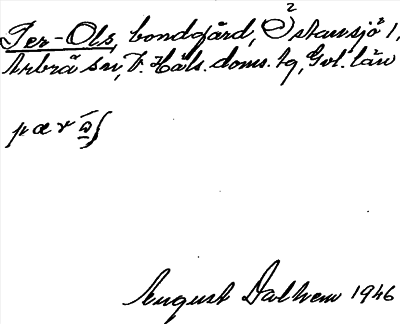 Per-Ols, bondgård, Östansjö 1,
Arbrå sn, V. Häls. doms. tg, Gvl. län
August Dalhem 1946